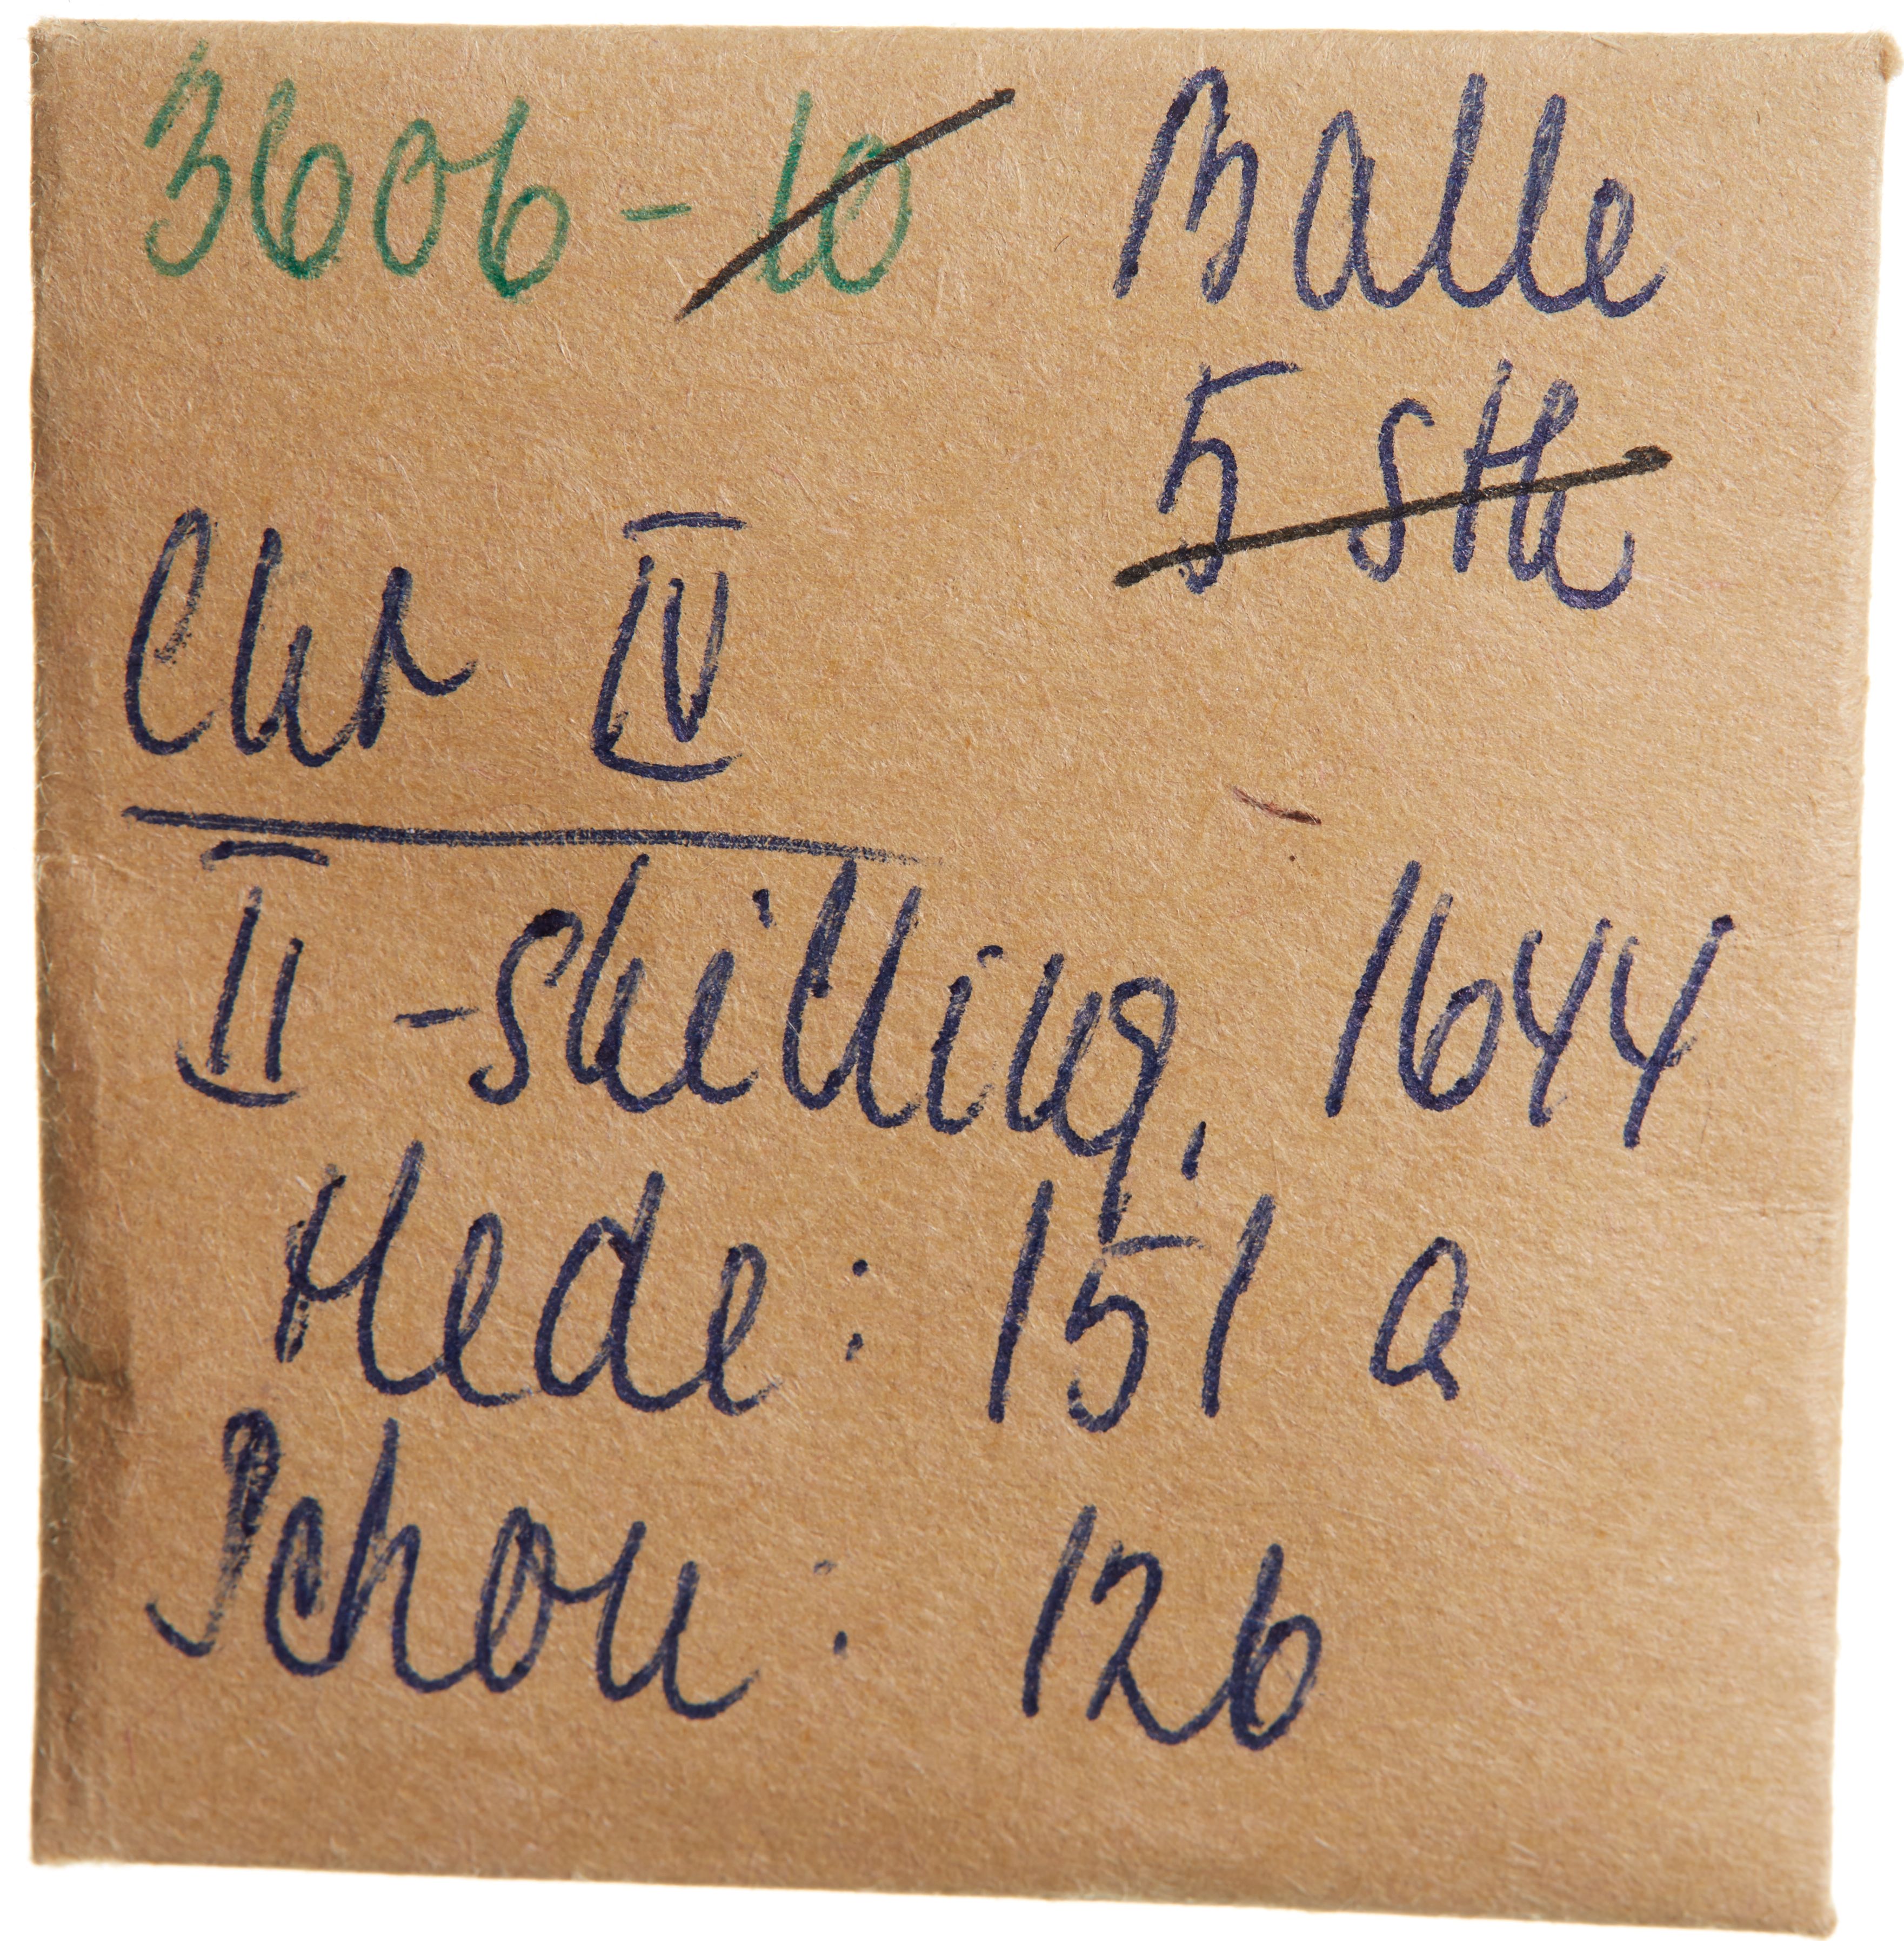 3606 - 10 Balle
5 stk
Chr IV
II - skilling, 1644
Hede: 151 a
Schou: 126